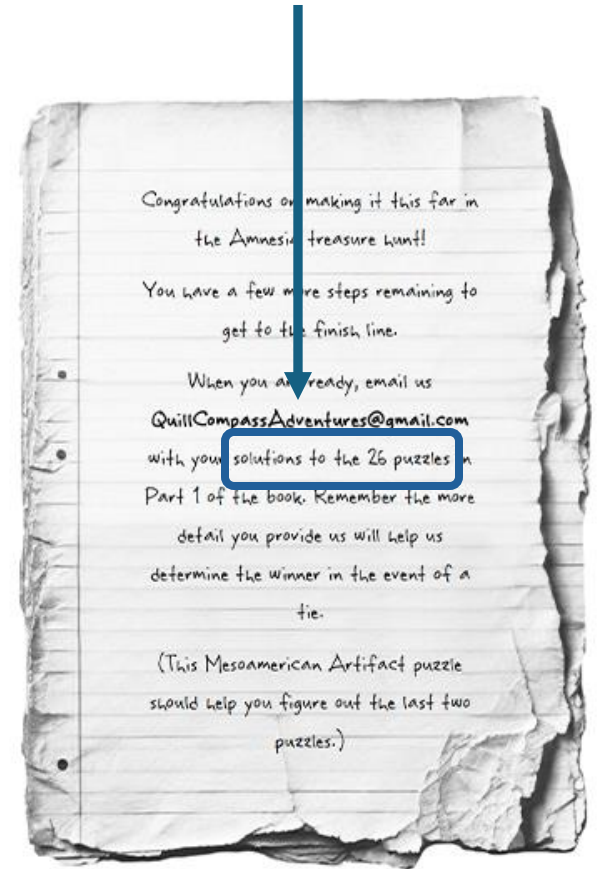 Congratulations on making it this far in
the Amnesia treasure hunt!
You have a few more steps remaining to
get to the finish line.
When you are ready, email us
QuillCompassAdventures@gmail.com
with your solutions to the 26 puzzles in
Part 1 of the book. Remember the more
detail you provide us will help us
determine the winner in the event of a
tie.
(This Mesoamerican Artifact puzzle
should help you figure out the last two
puzzles.)